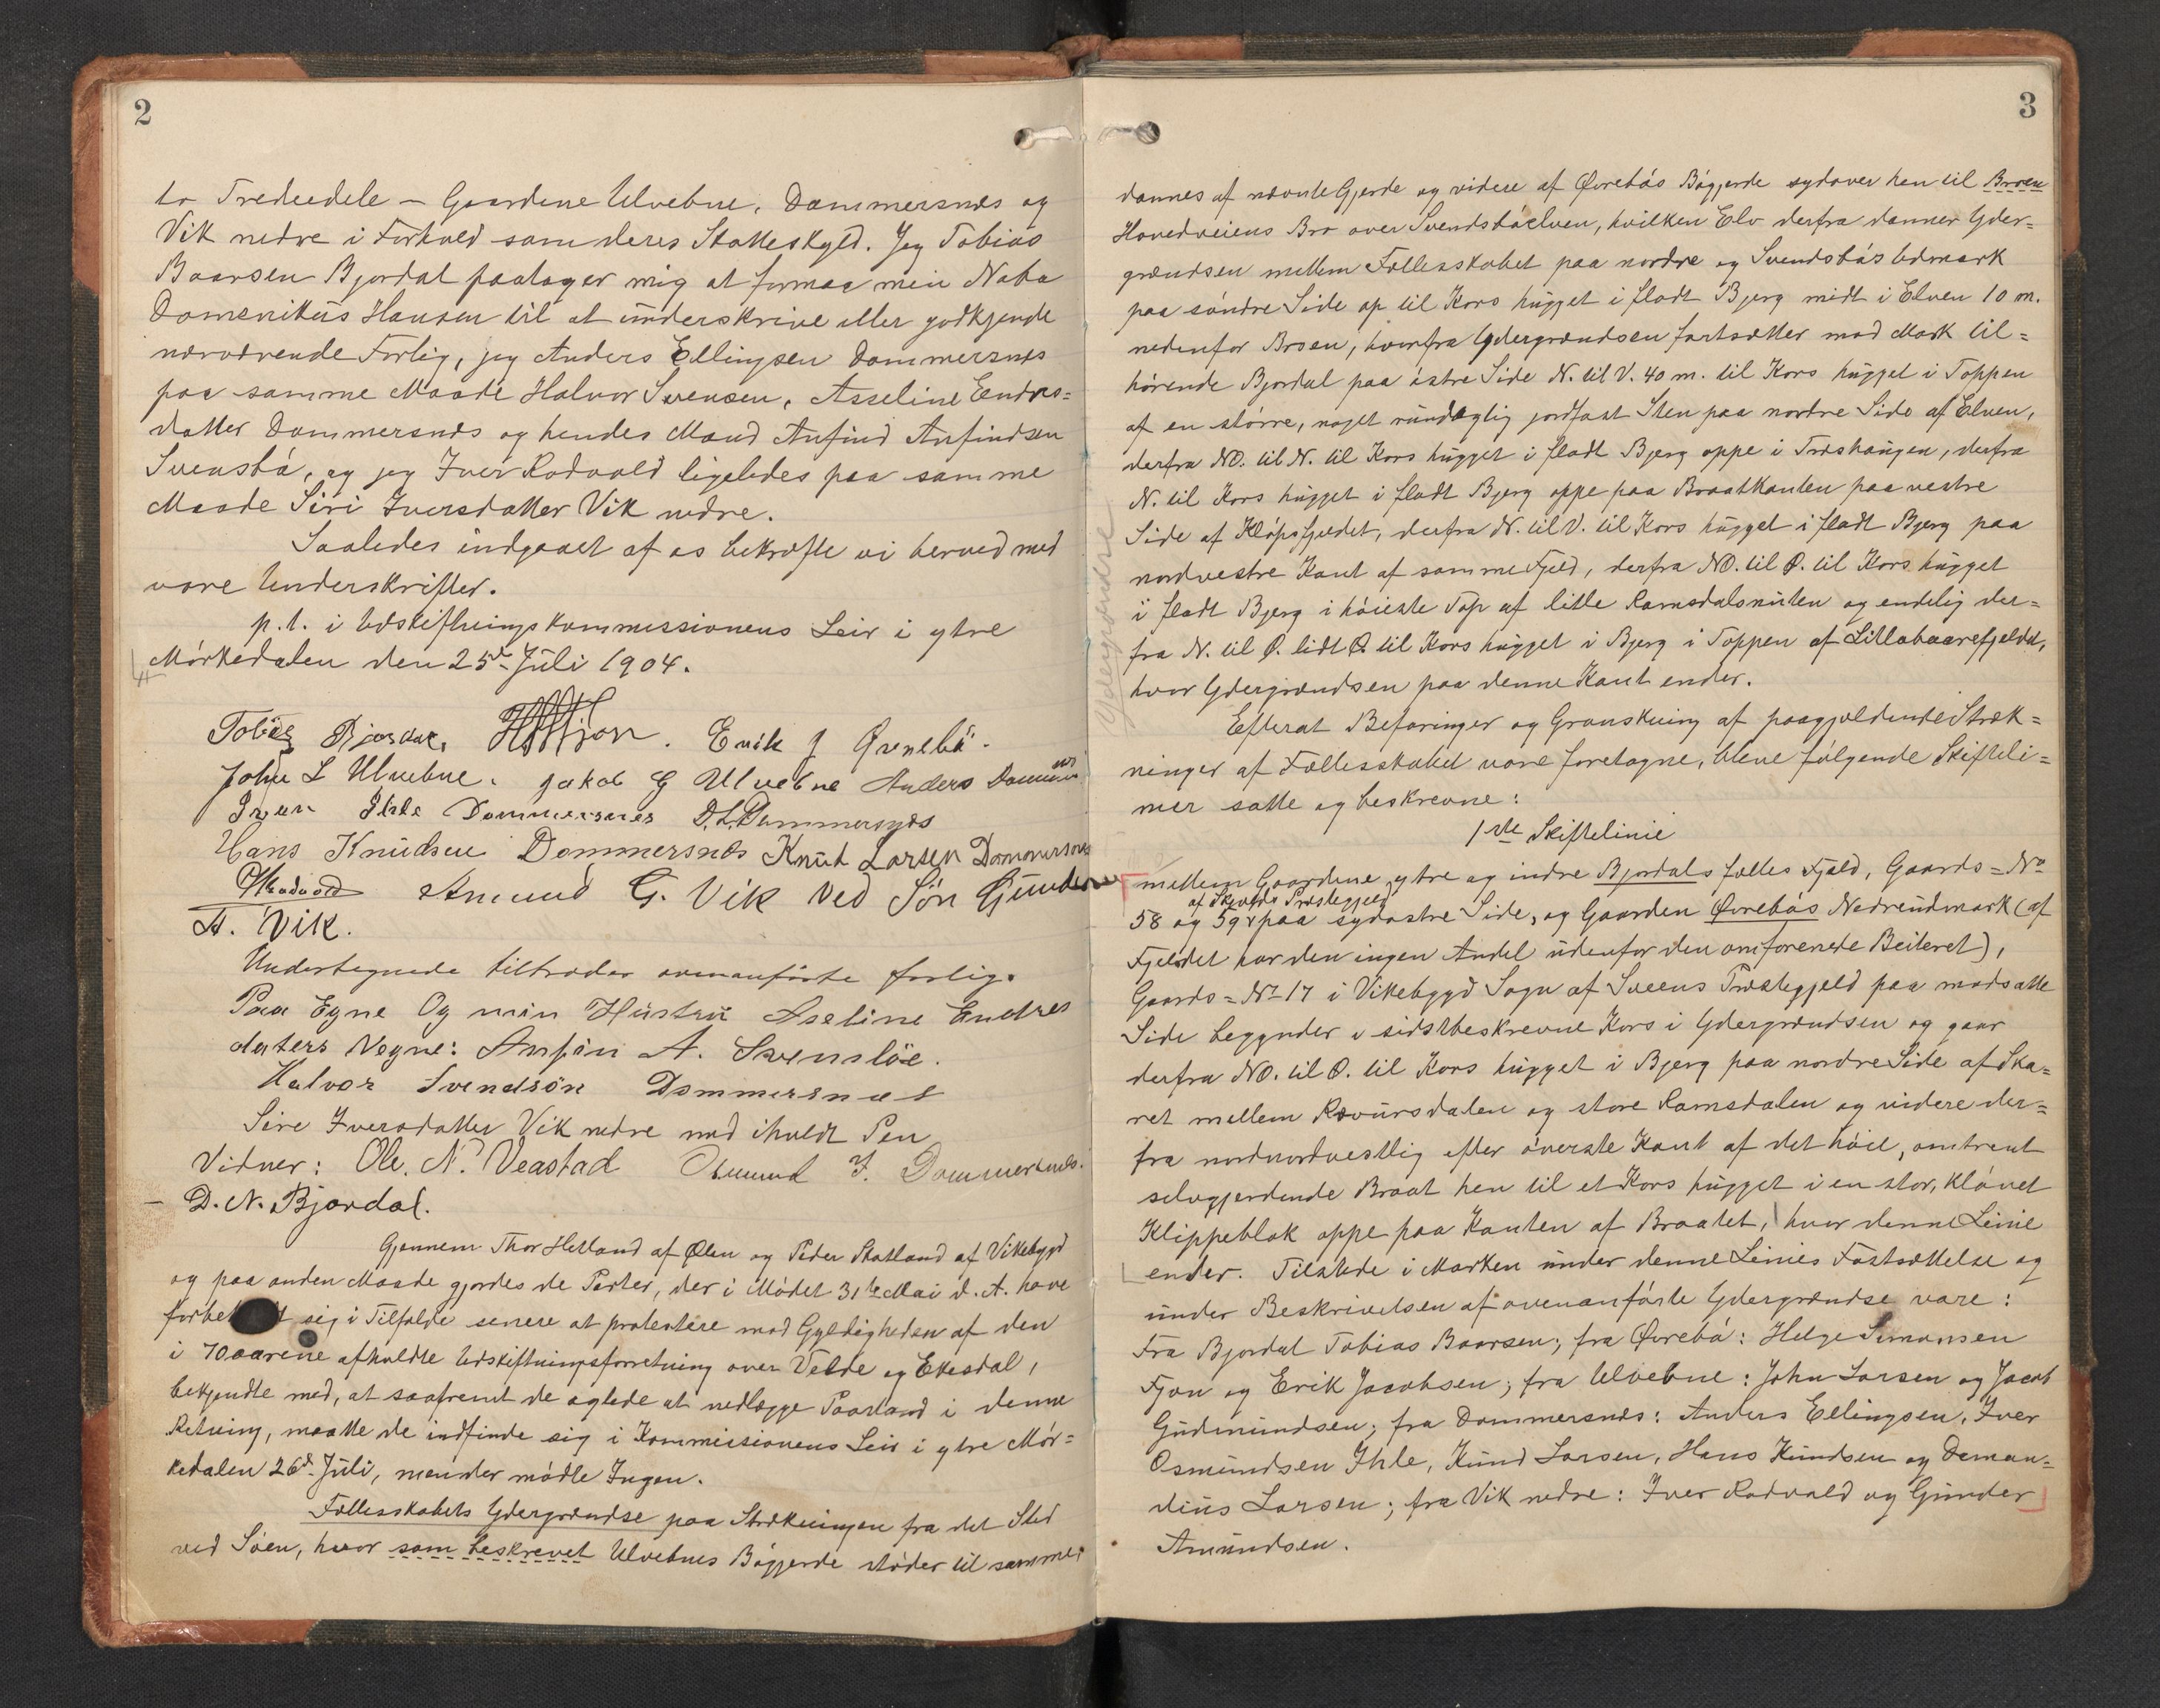 2
to Trediedele – Gaardene Ulvebne, Dommersnes og
Vik nedre i Forhold som deres Skatteskyld. Jeg Tobias
Baarsen Bjordal paatager mig at formaa min Nabo
Domenikus Hansen til at underskrive eller godkjende
nærværende Forlig, jeg Anders Ellingsen Dommersnes
paa samme Maade Halvor Svensen, Asseline Endres=
datter Dommersnes og hendes Mand Anfind Anfindsen
Svensbø, og jeg Iver Rodvald ligeledes paa samme
Maade Siri Iversdatter Vik nedre.
Saaledes indgaaet af os bekræfte vi herved med
vore Underskrifter.
p.t. i Udskiftningskommissionens Leir i ytre
Mørkedalen den 25de Juli 1904.
Tobias Bjordal. H Fjon. Erik J Øvrebø.
John L Ulvebne. Jakob G Ulvebne Anders Dommersnes
Iver Ihle Dommersnes D.L. Dommersnes
Hans Knudsen Dommersnes Knut Larsen Dommersnes
Rodvold Amund G. Vik ved Søn Gunder
A. Vik.
Undertegnede tiltræder ovenanførte forlig.
Paa Egne Og min Hustru Aseline Endres
daters Vegne: Anfin A. Svensbøe.
Halvor Svendsøn Dommersnes
Sire Iversdatter Vik nedre med iholdt Pen
Vidner: Ole. N. Veastad Osmund I. Dommersnes.
D. N. Bjordal.
Gjennem Thor Hetland af Ølen og Peder Skatland af Vikebygd
og paa anden Maade gjordes de Parter, der i Mødet 31te Mai d. A. have
forbeh sig i Tilfælde senere at protestere mod Gyldigheden af den
i 70aarene afholdte Udskiftningsforretning over Velde og Ekesdal,
bekjendte med, at saafremt de agtede at nedlægge Paastand i denne
Retning, maatte de indfinde sig i Kommissionens Leir i ytre Mør=
kedalen 26de Juli, men der mødte Ingen.
Fællesskabets Ydergrændse paa Strækningen fra det Sted
ved Søen, hvor som beskrevet Ulvebnes Bøgjerde støder til samme,
3
dannes af nævnte Gjerde og videre af Øvrebøs Bøgjerde sydover hen til Broen
Hovedveiens Bro over Svendsbøelven, hvilken Elv derfra danner Yder=
grændsen mellem Fællesskabet paa nordre og Svendsbøs Udmark
paa søndre Side op til Kors hugget i fladt Bjerg midt i Elven 10 m.
nedenfor Broen, hvorfra Ydergrændsen fortsætter mod Mark til=
hørende Bjordal paa østre Side N. til V. 40 m. til Kors hugget i Toppen
af en større, noget rundagtig jordfast Sten paa nordre Side af Elven,
derfra NO. til N. til Kors hugget i fladt Bjerg oppe i Træshaugen, derfra
N. til Kors hugget i fladt Bjerg oppe paa Braatkanten paa vestre
Side af Kløpsfjeldet, derfra N. til V. til Kors hugget i fladt Bjerg paa
nordvestre Kant af samme Fjeld, derfra NO. til Ø. til Kors hugget
i fladt Bjerg i høieste Top af litle Ramsdalsnuten og endelig der=
fra N. til Ø. lidt Ø. til Kors hugget i Bjerg i Toppen af Lillabaarefjeldet,
hvor Ydergrændsen paa denne Kant ender.
Ydergrændse
Efterat Befaringer og Granskning af paagjældende Stræk=
ninger af Fællesskabet vare foretagne, bleve følgende Skifteli=
nier satte og beskrevne:
1ste Skiftelinie
mellem Gaardene ytre og indre Bjordals fælles Fjeld, Gaards=No
af Skjolds Præstegjeld
58 og 59 paa sydøstre Side, og Gaarden Øvrebøs Nedreudmark (af
Fjeldet har den ingen Andel udenfor den omforenede Beiteret),
Gaards=No 17 i Vikebygd Sogn af Sveens Præstegjeld paa modsatte
Side begynder i sidstbeskrevne Kors i Ydergrændsen og gaar
derfra NO. til Ø. til Kors hugget i Bjerg paa nordre Side af Ska=
ret mellem Rævursdalen og store Ramsdalen og videre der=
fra nordnordvestlig efter øverste Kant af det høie, omtrent
selvgjerdende Braat hen til et Kors hugget i en stor, kløvet
Klippeblok oppe paa Kanten af Braatet, hvor denne Linie
ender. Tilstede i Marken under denne Linies Fastsættelse og
under Beskrivelsen af ovenanførte Ydergrændse vare:
Fra Bjordal Tobias Baarsen; fra Øvrebø: Helge Simonsen
Fjon og Erik Jacobsen; fra Ulvebne: John Larsen og Jacob
Gudmundsen; fra Dommersnes: Anders Ellingsen, Iver
Osmundsen Ihle, Knud Larsen, Hans Knudsen og Deman=
dius Larsen; fra Vik nedre: Iver Rodvald og Gunder
Amundsen.